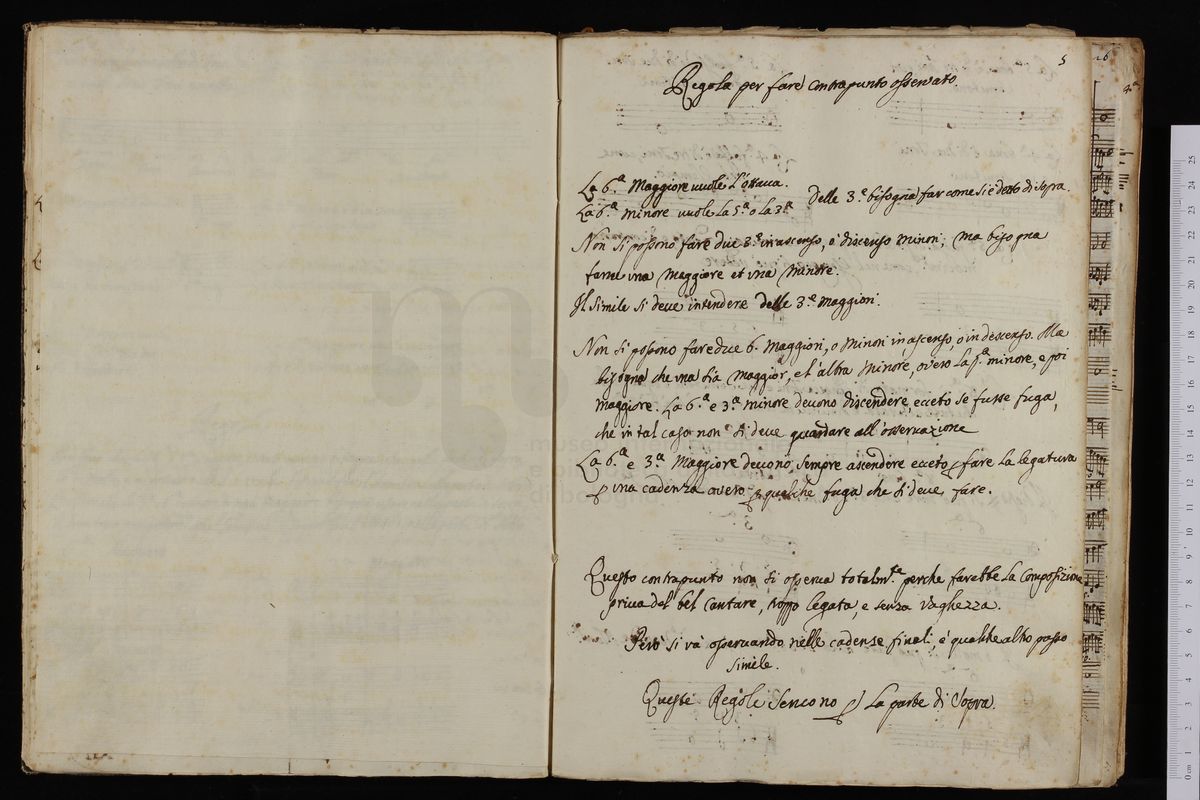 5
Regola per fare contrapunto osservato
La 6.ª Maggiore vuole l'ottava.
La 6.ª minore vuole La 5.ª o la 3.ª
Delle 3.e bisogna far come si è detto di sopra.
Non si possono fare due 3.e in ascenso, è discenso minori; ma bisogna
farne una Maggiore et una Minore.
Il simile si deve intendere delle 3.e maggiori.
Non si possono fare due 6. Maggiori, o Minori in ascenso, o in descenso. Ma
bisogna che una sia Maggior, e l'altra Minore, overo La pª minore, e poi
Maggiore. La 6.ª e 3.ª minore devono discendere, ecceto se fusse fuga,
che in tal caso non si deve guardare all'osservazione
La 6.ª e 3.ª Maggiore devono sempre ascendere ecceto p fare La legatura
p una cadenza overo p qualche fuga che si deve fare.
Questo contrapunto non si osserva totalm.te perche farebbe La Composizione
priva del bel Cantare, troppo legata, e senza vaghezza.
Però si và osservando nelle cadenze finali, è qualche altro passo
simile.
Queste Regole servono p La parte di sopra.